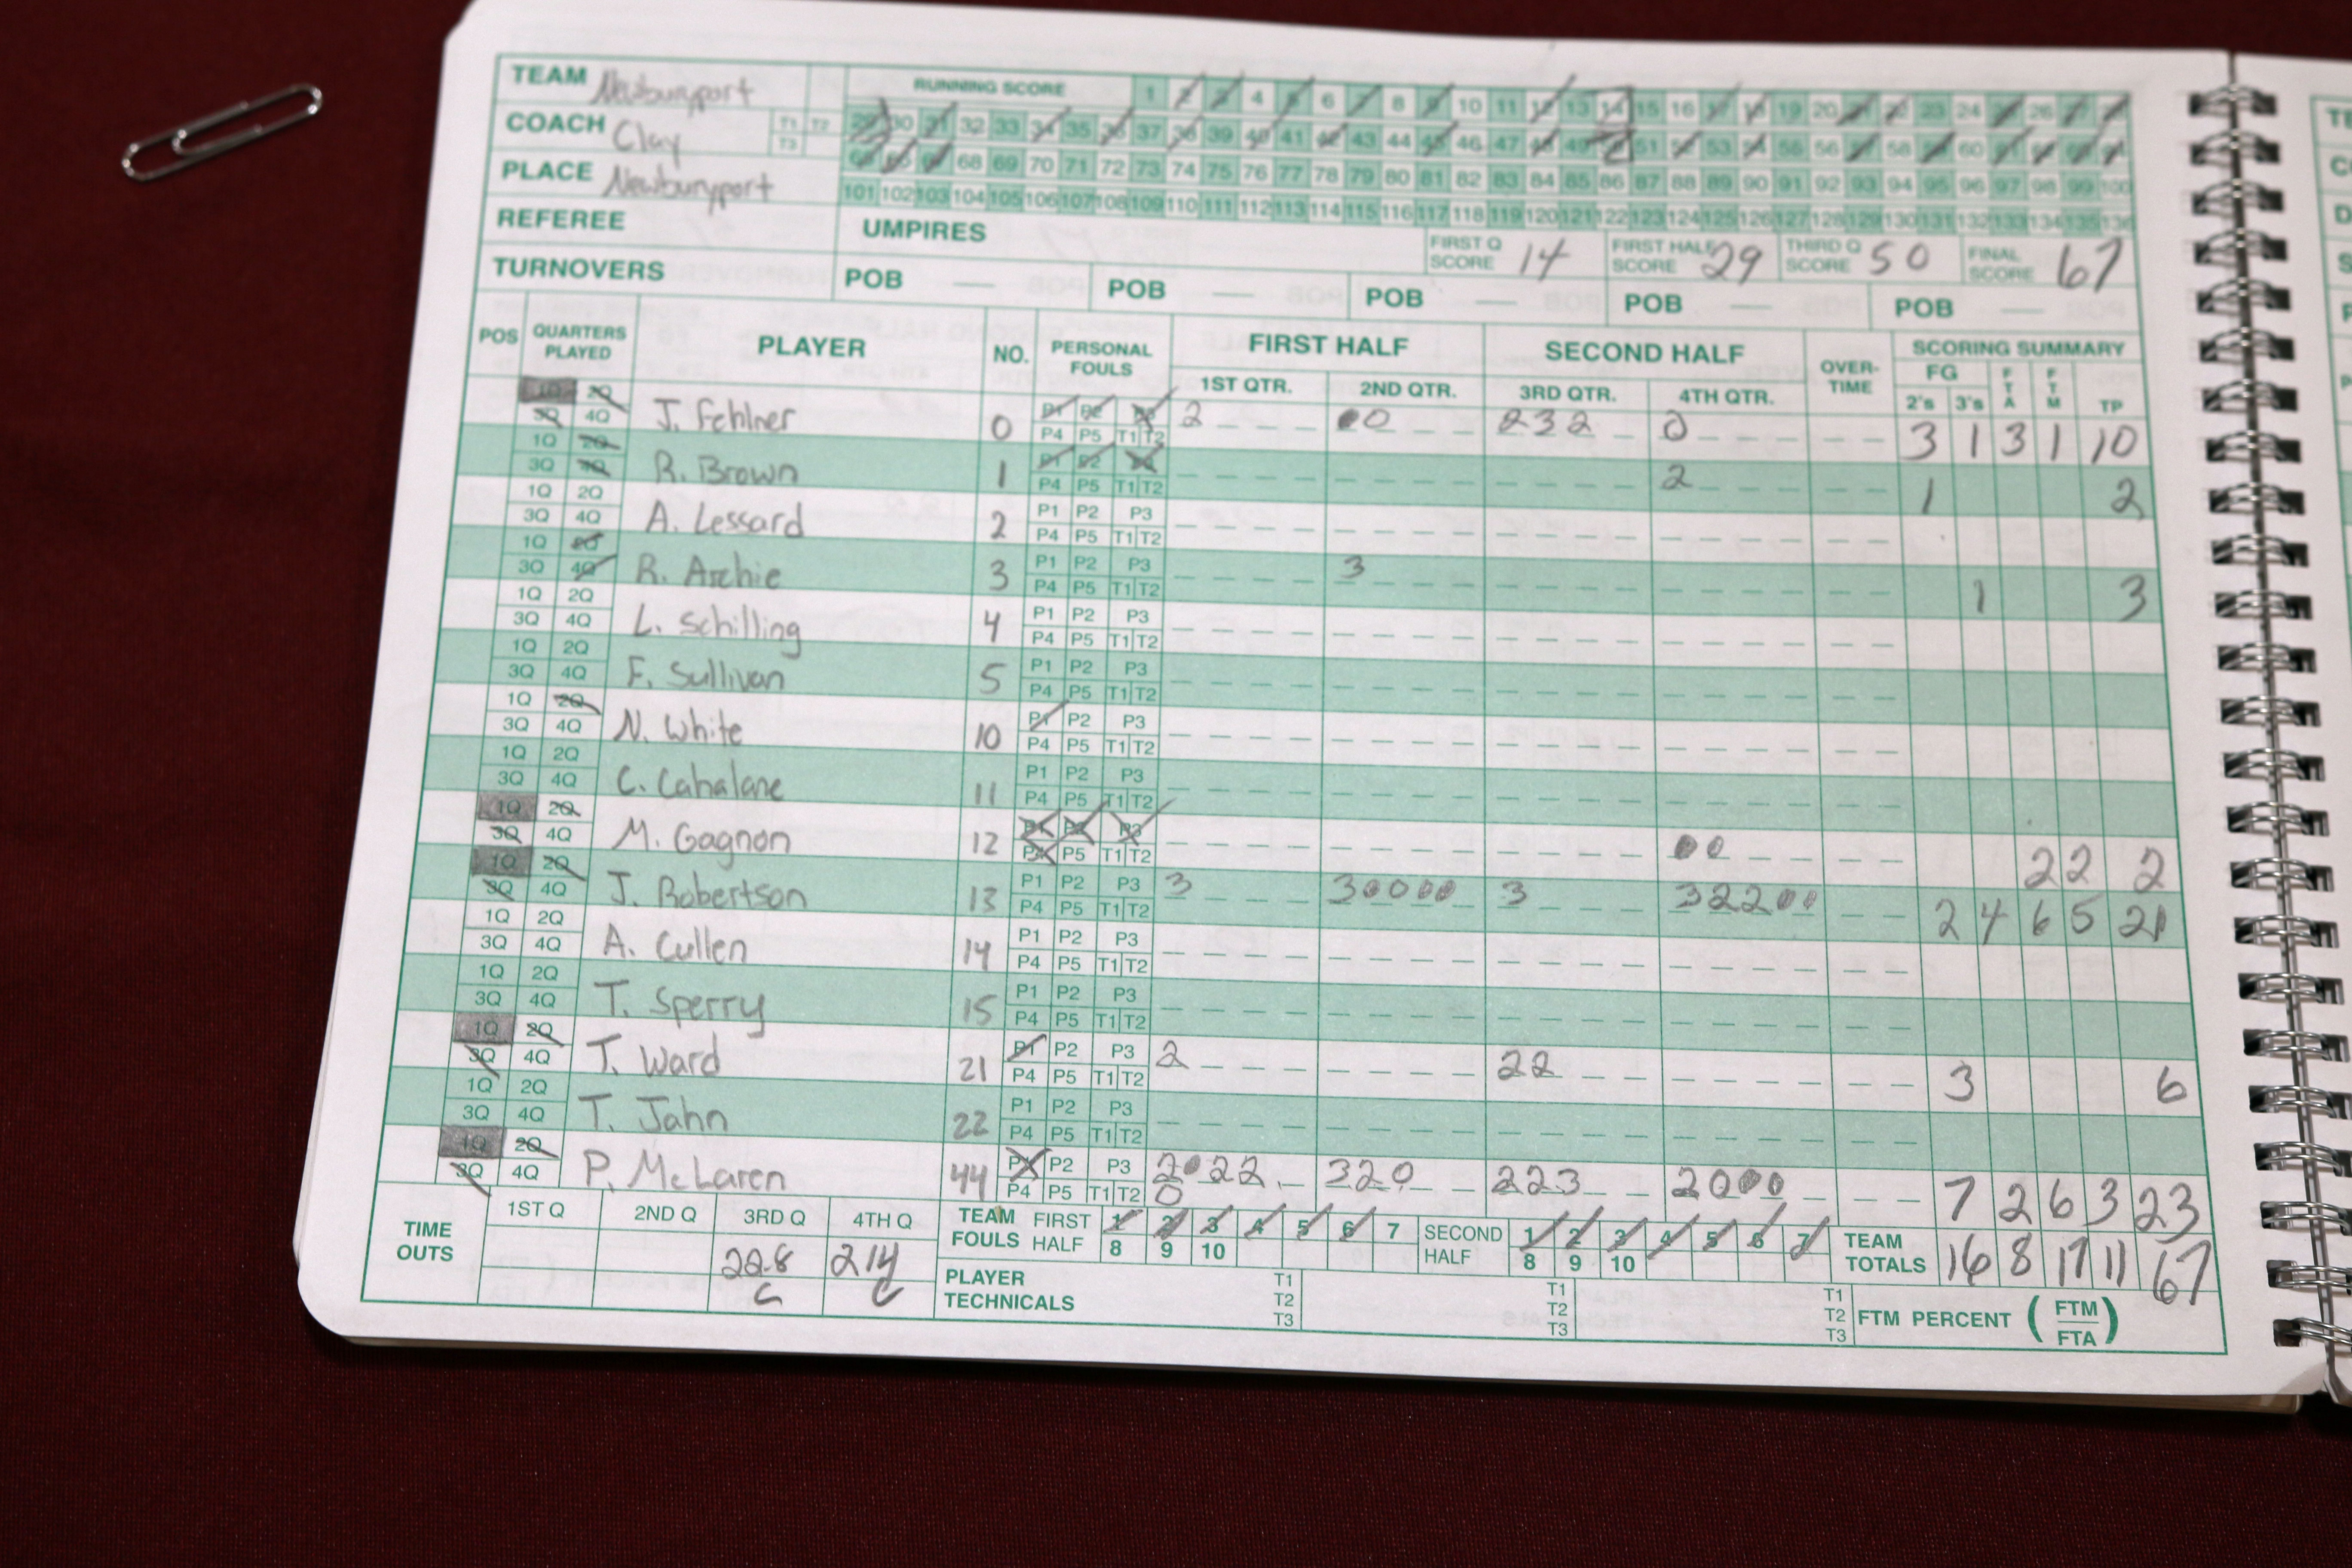 TEAM Newburyport RUNNING SCORE 1 2 3 4 5 6 7 8 9 10 11 12 13 14 15 16 17 18 19 20 21 22 23 24 25 26 27 28
COACH Clay T1 T2 T3 29 30 31 32 33 34 35 36 37 38 39 40 41 42 43 44 45 46 47 48 49 50 51 52 53 54 55 56 57 58 59 60 61 62 63 64
65 66 67 68 69 70 71 72 73 74 75 76 77 78 79 80 81 82 83 84 85 86 87 88 89 90 91 92 93 94 95 96 97 98 99 100
PLACE Newburyport 101 102 103 104 105 106 107 108 109 110 111 112 113 114 115 116 117 118 119 120 121 122 123 124 125 126 127 128 129 130 131 132 133 134 135 136
REFEREE UMPIRES FIRST Q SCORE 14 FIRST HALF SCORE 29 THIRD Q SCORE 50 FINAL SCORE 67
TURNOVERS POB — POB — POB — POB — POB —
POS QUARTERS PLAYED PLAYER NO. PERSONAL FOULS FIRST HALF SECOND HALF OVER-TIME SCORING SUMMARY
1ST QTR. 2ND QTR. 3RD QTR. 4TH QTR. FG 2's 3's FTA FTM TP
1Q 2Q 3Q 4Q J. Fehlner 0 P1 P2 P3 P4 P5 T1 T2 2 00 232 0 3 1 3 1 10
1Q 2Q 3Q 4Q R. Brown 1 P1 P2 P3 P4 P5 T1 T2 2 1 2
1Q 2Q 3Q 4Q A. Lessard 2 P1 P2 P3 P4 P5 T1 T2
1Q 2Q 3Q 4Q R. Archie 3 P1 P2 P3 P4 P5 T1 T2 3 1 3
1Q 2Q 3Q 4Q L. Schilling 4 P1 P2 P3 P4 P5 T1 T2
1Q 2Q 3Q 4Q F. Sullivan 5 P1 P2 P3 P4 P5 T1 T2
1Q 2Q 3Q 4Q N. White 10 P1 P2 P3 P4 P5 T1 T2
1Q 2Q 3Q 4Q C. Cahalane 11 P1 P2 P3 P4 P5 T1 T2
1Q 2Q 3Q 4Q M. Gagnon 12 P1 P2 P3 P4 P5 T1 T2 00 2 2 2
1Q 2Q 3Q 4Q J. Robertson 13 P1 P2 P3 P4 P5 T1 T2 3 30000 3 32200 2 4 6 5 21
1Q 2Q 3Q 4Q A. Cullen 14 P1 P2 P3 P4 P5 T1 T2
1Q 2Q 3Q 4Q T. Sperry 15 P1 P2 P3 P4 P5 T1 T2
1Q 2Q 3Q 4Q T. Ward 21 P1 P2 P3 P4 P5 T1 T2 2 22 3 6
1Q 2Q 3Q 4Q T. Jahn 22 P1 P2 P3 P4 P5 T1 T2
1Q 2Q 3Q 4Q P. McLaren 44 P1 P2 P3 P4 P5 T1 T2 2022 0 320 223 2000 7 2 6 3 23
TIME OUTS 1ST Q 2ND Q 3RD Q 4TH Q TEAM FOULS FIRST HALF 1 2 3 4 5 6 7 8 9 10 SECOND HALF 1 2 3 4 5 6 7 8 9 10 TEAM TOTALS 16 8 17 11 67
22.8 C 214 C
PLAYER TECHNICALS T1 T2 T3 T1 T2 T3 T1 T2 T3 FTM PERCENT (FTM/FTA)